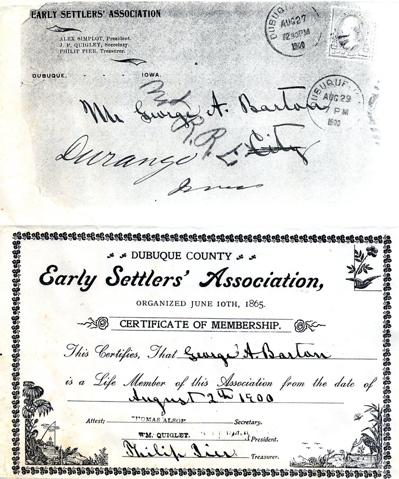 EARLY SETTLERS' ASSOCIATION
ALEX SIMPLOT, President.
J. P. QUIGLEY, Secretary
PHILIP PIER, Treasurer.
DUBUQUE, IOWA.
DUBUQUE
AUG 27
1900
DUBUQUE
AUG 29
PM
1900
Mr George A. Barton
R. R.
City
Durango
Iowa
DUBUQUE COUNTY
Early Settlers' Association,
ORGANIZED JUNE 10TH, 1865.
CERTIFICATE OF MEMBERSHIP.
This Certifies, That George A Barton
is a Life Member of this Association from the date of
August 2th 1900
Attest: THOMAS ALSOP Secretary.
WM. QUIGLEY. President.
Philip Pier Treasurer.